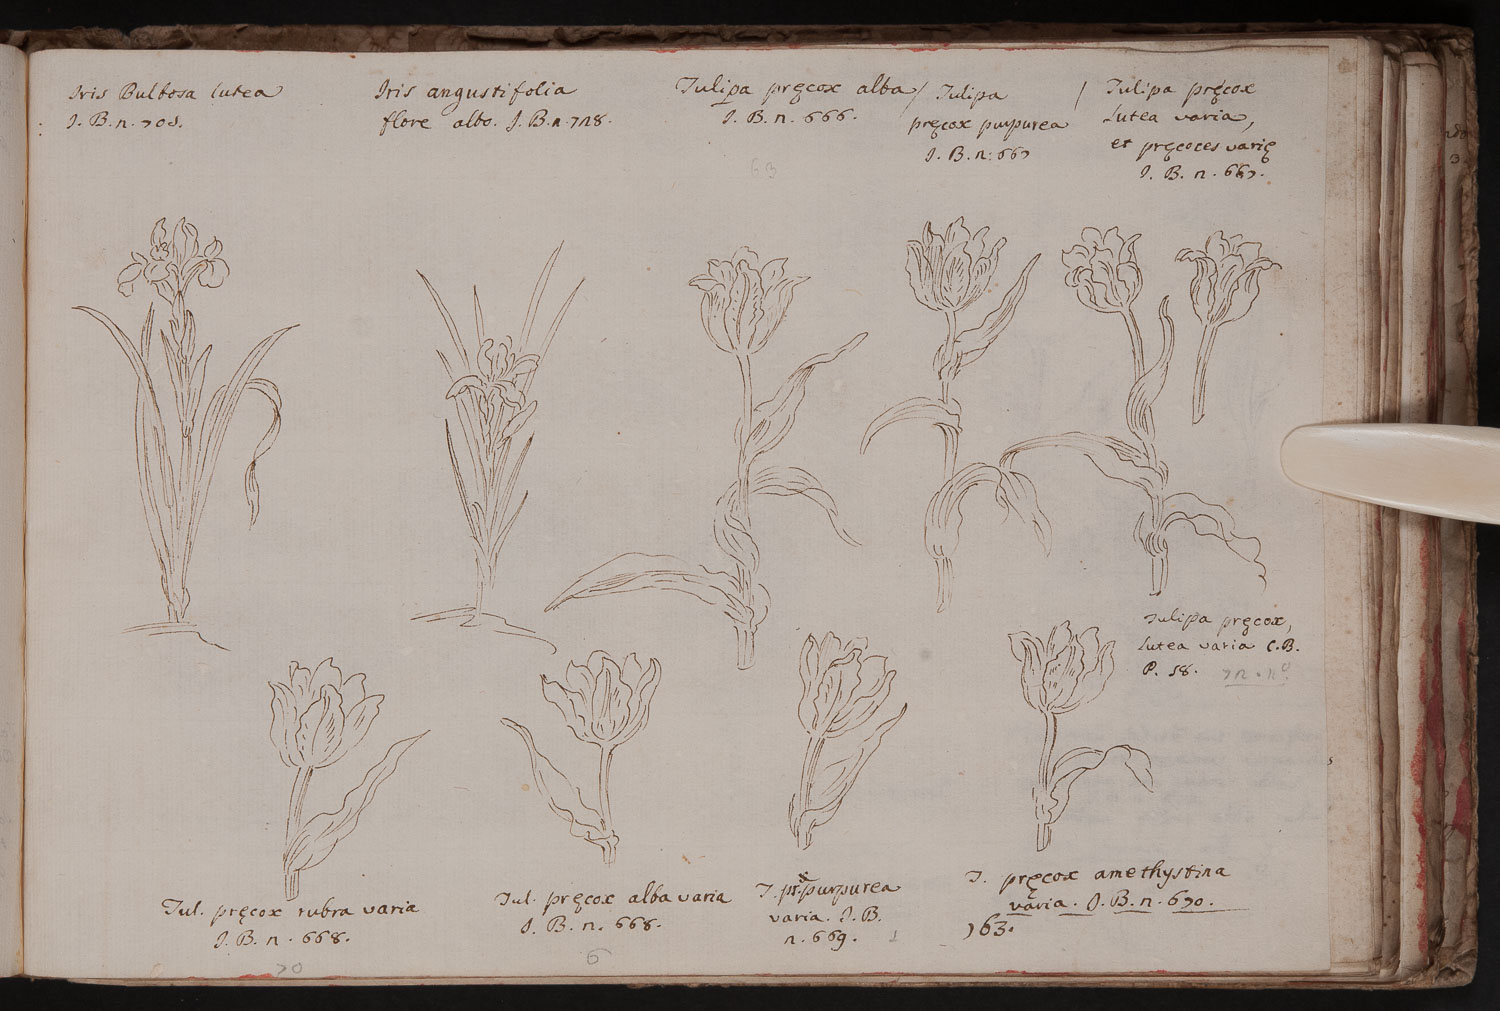 Iris Bulbosa lutea
J. B. n. 708.
Iris angustifolia
flore albo. J. B. n. 728.
Tulipa pręcox alba /
J. B. n. 666.
Tulipa /
pręcox purpurea
J. B. n: 667
Tulipa pręcox
lutea varia,
et pręcoces varię
J. B. n. 667.
63
Tulipa pręcox,
lutea varia C. B.
P. 58.
Tul. pręcox rubra varia
J. B. n. 668.
70
Tul. pręcox alba varia
J. B. n. 668.
6
T. pr. purpurea
varia. J. B.
n. 669.
1
T. pręcox amethystina
varia. J. B. n. 670.
763.